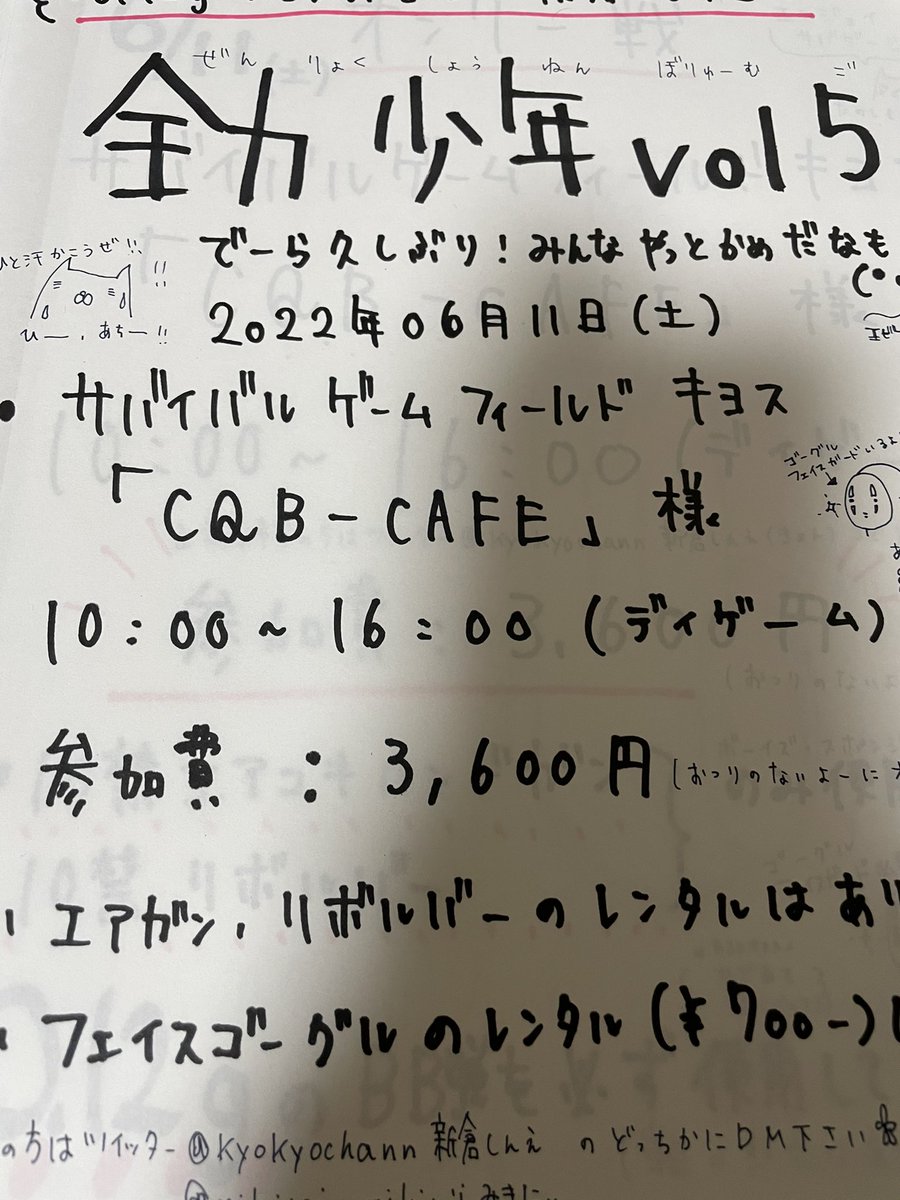 ぜんりょくしょうねんぼりゅーむご
全力少年vol5
ひと汗かこうぜ!!
でーら久しぶり!みんなやっとかめだなも
ひー、あちー!!
2022年06月11日(土)
・サバイバルゲームフィールド キヨス
ゴーグル
フェイスガード
「CQB-CAFE」様
10:00~16:00(ディゲーム)
参加費:3,600円(おつりのないよーに
エアガン、リボルバーのレンタルはあ
・フェイスゴーグルのレンタル(¥700-)
の方はツイッター@kyokyochann 新倉しんえ のどっちかにDM下さい